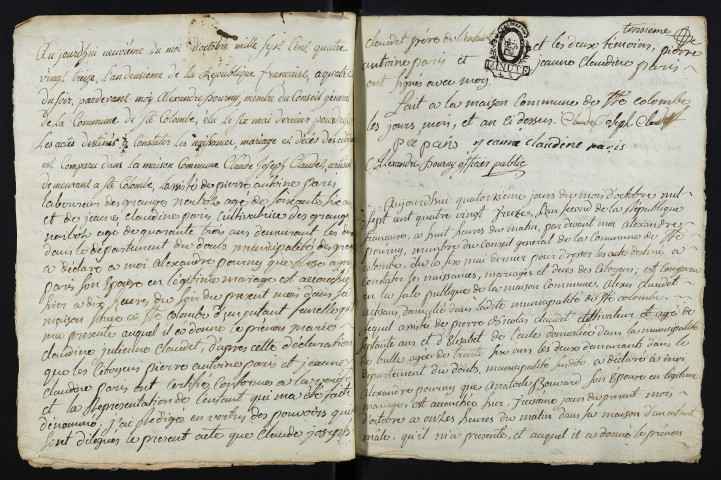 Aujourdhui neuvieme du moi d'octobre mille sept Cent quatre
vingt treize, L'an deusieme de la République francaise, a quatre
du soir, pardevant moy Alexandre pourny membre du Conseil général
de la Commune de Ste Colombe, élu le six mai dernier pour
Les actes destinés a Constater les naissances, mariage et décès des
est Comparu dans la maison Commune Claude Joseph Claudet,
demeurant a Ste Colombe, assisté de pierre antoine paris
laboureur des granges agé de
et de jeanne claudine paris Cultivatrice des granges
agé de quarante trois ans demeurant les deux
dans le département du doubs municipalité des granges
a déclaré a moi Alexandre pourny que
paris son Epouse en légitime mariage est accouchée
hier a dix heures du soir du present mois dans sa
maison située a Ste Colombe d'un enfant femelle qu'il
ma presenté auquel il a donné le prénom marie
claudine julienne Claudet, d'apres cette déclaration
que les Citoyens pierre antoine paris et jeanne
claudine paris ont certifiée Conforme a la vérité
et la Représentation de l'enfant qui ma été faite
dénommé, j'ai rédigé en vertu des pouvoirs qui
sont délégués le present acte que Claude joseph
troisieme
claudet pére de l'enfant et les deux témoins, pierre
antoine paris et jeanne Claudine paris
ont signés avec moy
fait a la maison Commune de Ste colombe
les jours, mois, et an ci dessus. Claude joseph Claudet
P a paris jeanne claudine paris
Alexandre pourny officier public
Aujourdhui quatorzieme jours du mois d'octobre mil
sept cent quatre vingt treize, L'an second de la République
francaise, a huit heures du matin, par devant moi alexandre
pourny, membre du Conseil general de la Commune de Ste
colombe, élu le six mai dernier pour dresser les actes destiné a
constater les naissances, mariages et deces des Citoyens; est comparu
en la sale publique de la maison Commune Alexis claudet
artisans, domicilié dans ladite municipalité de Ste colombe
lequel assisté de pierre Nicolas claudet Cultivateur et agé de
ans et d'Elisabet de domiciliée dans la municipalité
de bulle agée de trente six ans les deux demeurants dans le
departement du doubs, municipalité susdite a déclaré a moi
Alexandre pourny que Anatoile son Epouse en legitime
mariage, est accouchée hier treizieme jours du present mois
d'octobre a onze heures du matin dans sa maison d'un enfant
mâle, qu'il m'a presenté, et auquel il a donné le prénom